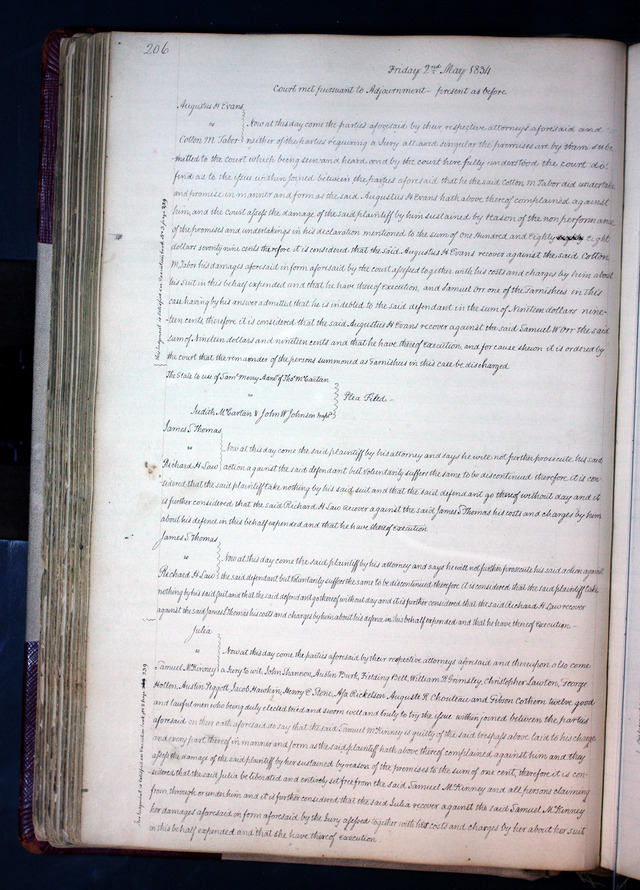 206
Friday 2nd May 1834
Court met pursuant to Adjournment - present as before
Augustus H Evans
vs
Now at this day come the parties aforesaid by their respective attorneys aforesaid and
Cotton M. Tabor
neither of the parties requiring a Jury all and singular the premises are by them sub
mitted to the court which being seen and heard and by the court here fully understood the court doth
find as to the issue within joined between the parties aforesaid that he the said Cotton M. Tabor did undertake
and promise in manner and form as the said Augustus H Evans hath above thereof complained against
him, and the Court assess the damage of the said plaintiff by him sustained by reason of the non performance
of the promises and undertakings in his declaration mentioned to the sum of One Hundred and Eighty Eight
dollars seventy nine cents therefore it is considered that the said Augustus H Evans recover against the said Cotton
M. Tabor his damages aforesaid in form aforesaid by the court assessed together with his costs and charges by him about
his suit in this behalf expended and that he have thereof execution, and Samuel Orr one of the Garnishees in this
case having by his answer admitted that he is indebted to the said defendant in the sum of Nineteen dollars nine-
teen cents, therefore it is considered that the said Augustus H Evans recover against the said Samuel W Orr the said
sum of Nineteen dollars and nineteen cents and that he have thereof execution, and for cause shewn it is ordered by
the court that the remainder of the persons summoned as Garnishees in this case be discharged
The State to use of Saml Merry Admr of Thos McCartan
vs
Plea Filed -
Judith McCartan & John W Johnson
James S Thomas
vs
Now at this day come the said plaintiff by his attorney and says he will not further prosecute his said
Richard H Law
action against the said defendant but voluntarily suffers the same to be discontinued therefore it is con-
sidered that the said plaintiff take nothing by his said suit and that the said defendant go thereof without day and it
is further considered that the said Richard H Law recover against the said James S Thomas his costs and charges by him
about his defence in this behalf expended and that he have thereof execution
James S Thomas
vs
Now at this day come the said plaintiff by his attorney and says he will not further prosecute his said action against
Richard H Law
the said defendant but Voluntarily suffers the same to be discontinued therefore it is considered that the said plaintiff take
nothing by his said suit and that the said defendant go thereof without day and it is further considered that the said Richard H Law recover
against the said James S Thomas his costs and charges by him about his defence in this behalf expended and that he have thereof execution -
Julia
vs
Now at this day come the parties aforesaid by their respective attorneys aforesaid and thereupon also come
Samuel McKinney
a Jury to wit, John Shannon, Austin Burk, Fielding Bell, William D Grimsley, Christopher Lawton, George
Hollen, Austin Piggott, Jacob Hawkin, Henry C Stone, Asa Rickelson Auguste R Chouteau and Gibson Cothern twelve good
and lawful men who being duly elected tried and sworn well and truly to try the issue within joined between the parties
aforesaid on their oath aforesaid do say that the said Samuel McKinney is guilty of the said trespass above laid to his charge
and every part thereof in manner and form as the said plaintiff hath above thereof complained against him and they
assess the damage of the said plaintiff by her sustained by reason of the premises to the sum of one cent, therefore it is con-
sidered that the said Julia be liberated and entirely set free from the said Samuel McKinney and all persons claiming
from, through or under him and it is further considered that the said Julia recover against the said Samuel McKinney
her damages aforesaid in form aforesaid by the Jury assessed together with her costs and charges by her about her suit
in this behalf expended and that she have thereof execution